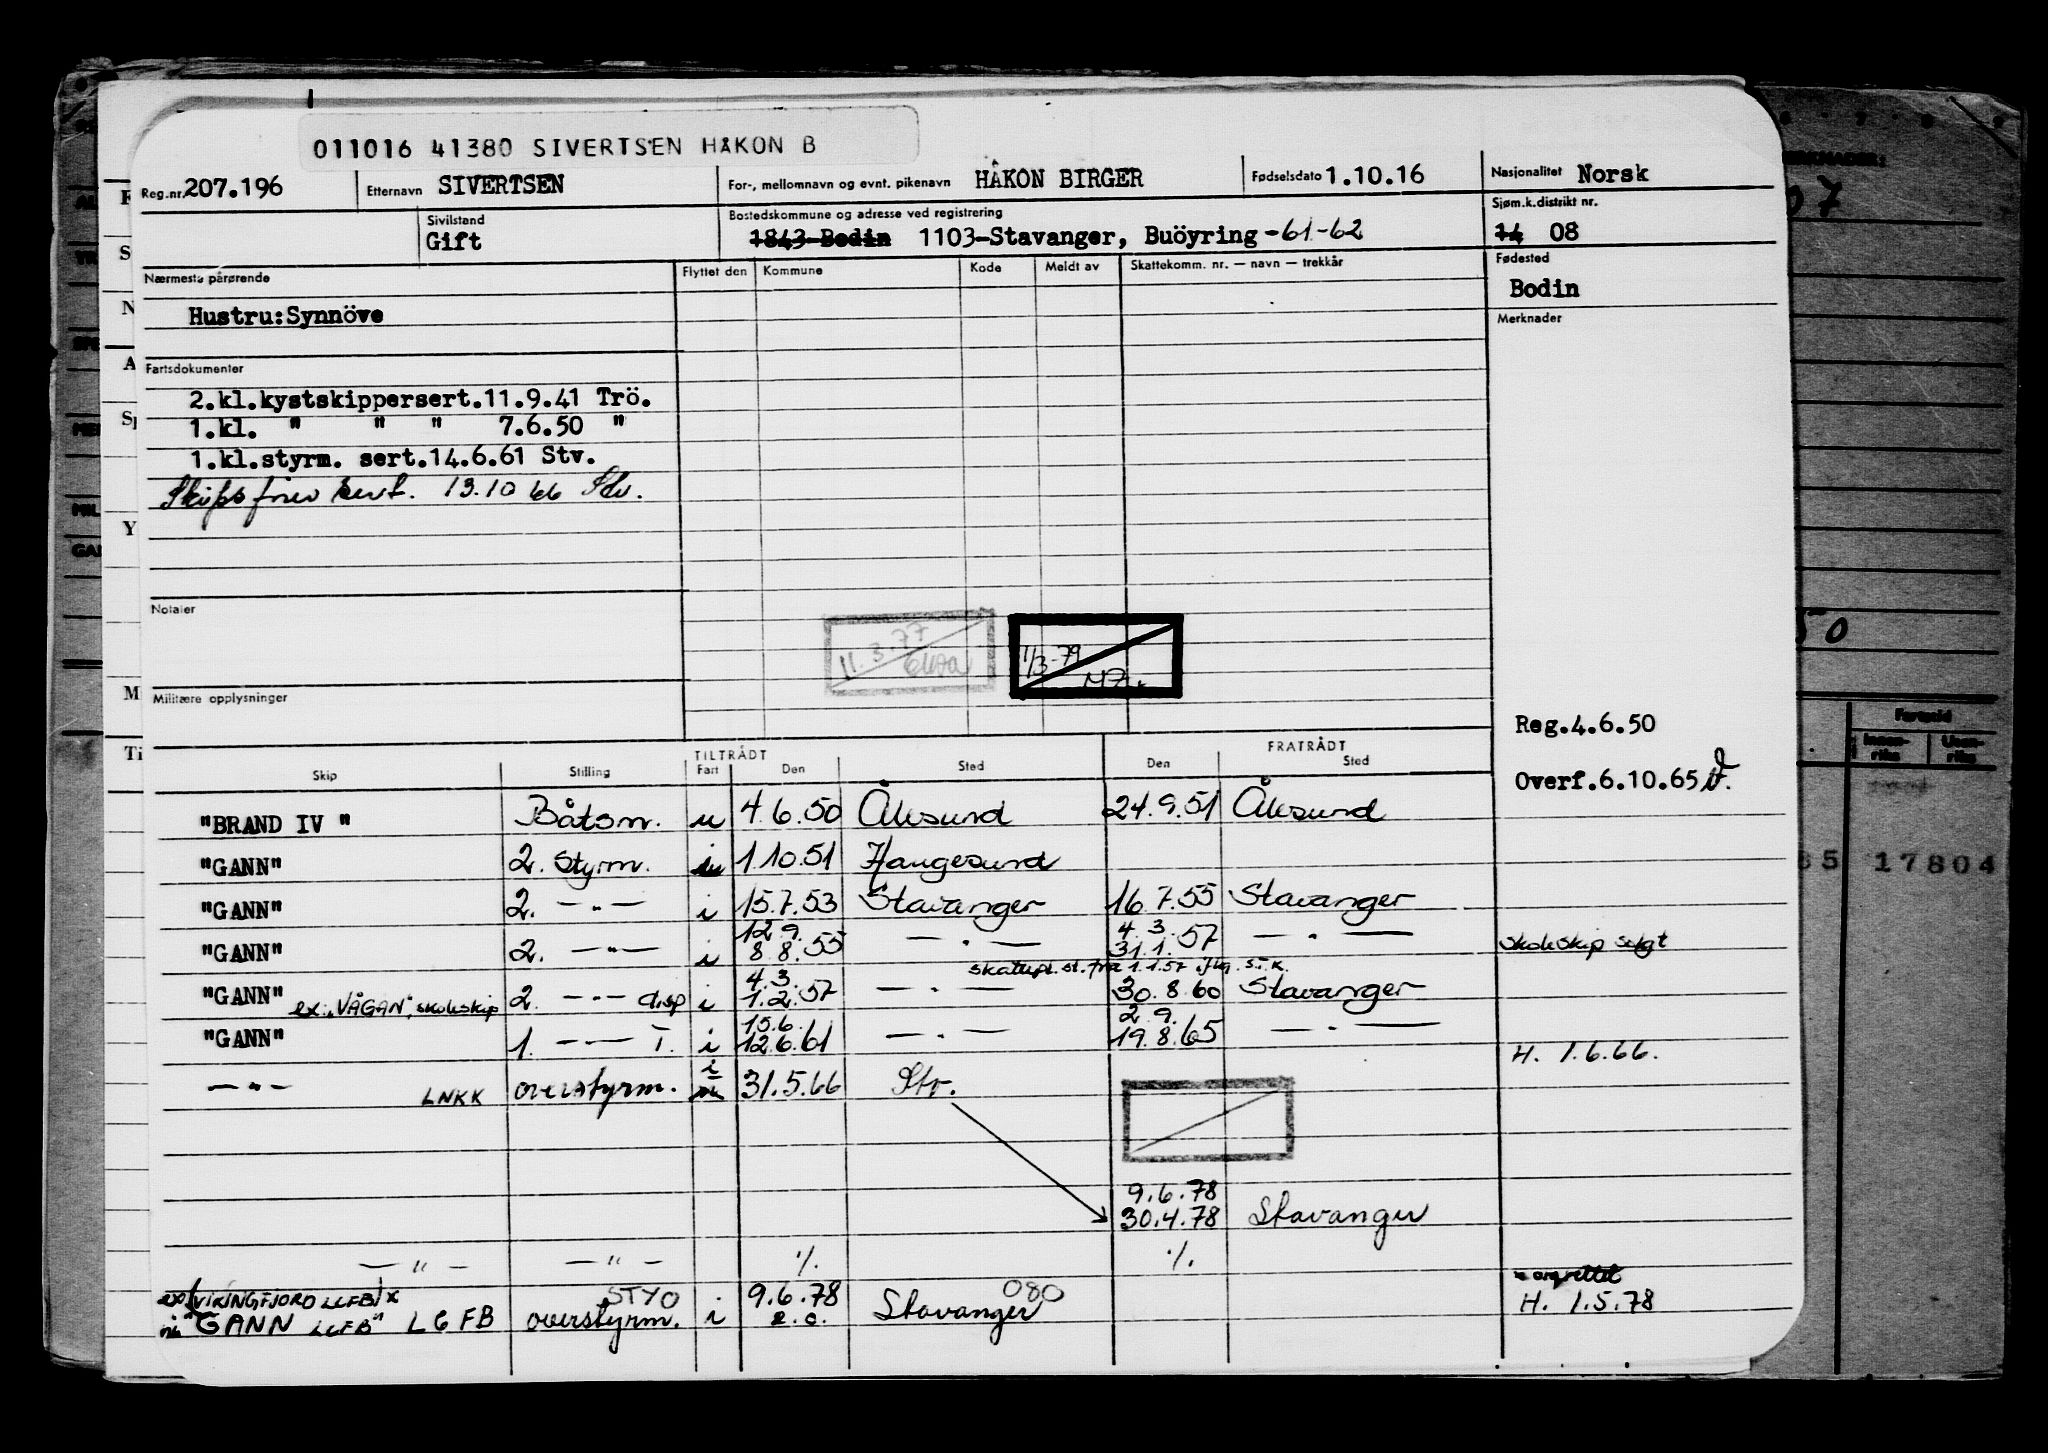 011016 41380 SIVERTSEN HÅKON B
Reg.nr. 207.196 Etternavn SIVERTSEN For-, mellomnavn og evnt. pikenavn HÅKON BIRGER Fødselsdato 1.10.16 Nasjonalitet Norsk
Sivilstand Gift Bostedskommune og adresse ved registrering 1843 Bodin 1103-Stavanger, Buöyring -61-62 Sjøm.k.distrikt nr. 14 08
Nærmeste pårørende Flyttet den Kommune Kode Meldt av Skattekomm. nr. — navn — trekkår Fødested
Bodin
Hustru:Synnöve
Merknader
Fartsdokumenter
2.kl.kystskippersert.11.9.41 Trö.
1.kl. " " " 7.6.50 "
1.kl.styrm. sert.14.6.61 Stv.
Skipsfører sert. 13.10 66 Stv.
Notater
11.3.77
1/3-79
Militære opplysninger
Reg.4.6.50
Overf.6.10.65
TILTRÅDT FRATRÅDT
Skip Stilling Fart Den Sted Den Sted
"BRAND IV " Båtsm. u 4.6.50 Ålesund 24.9.51 Ålesund
"GANN" 2. Styrm. 1.10.51 Haugesund
"GANN" 2. —"— i 15.7.53 Stavanger 16.7.55 Stavanger
12.9. 4.3.
"GANN" 2. —"— i 8.8.55 — " — 31.1.57 — " — skoleskip solgt
skattepl. st. fra 1.1.57 s.f.k.
4.3.
"GANN" ex. "VÅGAN", skoleskip 2. —"— disp i 1.2.57 — " — 30.8.60 Stavanger
15.6. 2.9.
"GANN" 1. —"— T. i 12.6.61 — " — 19.8.65 — " —
H. 1.6.66.
— " — LNKK overstyrm. i 31.5.66 Stv.
9.6.78
30.4.78 Stavanger
— " — — " — ./. ./.
ex (VIKINGFJORD LGFB) x STYO 9.6.78 080
nu "GANN LGFB" LGFB overstyrm. i Stavanger H. 1.5.78
07
50
17804